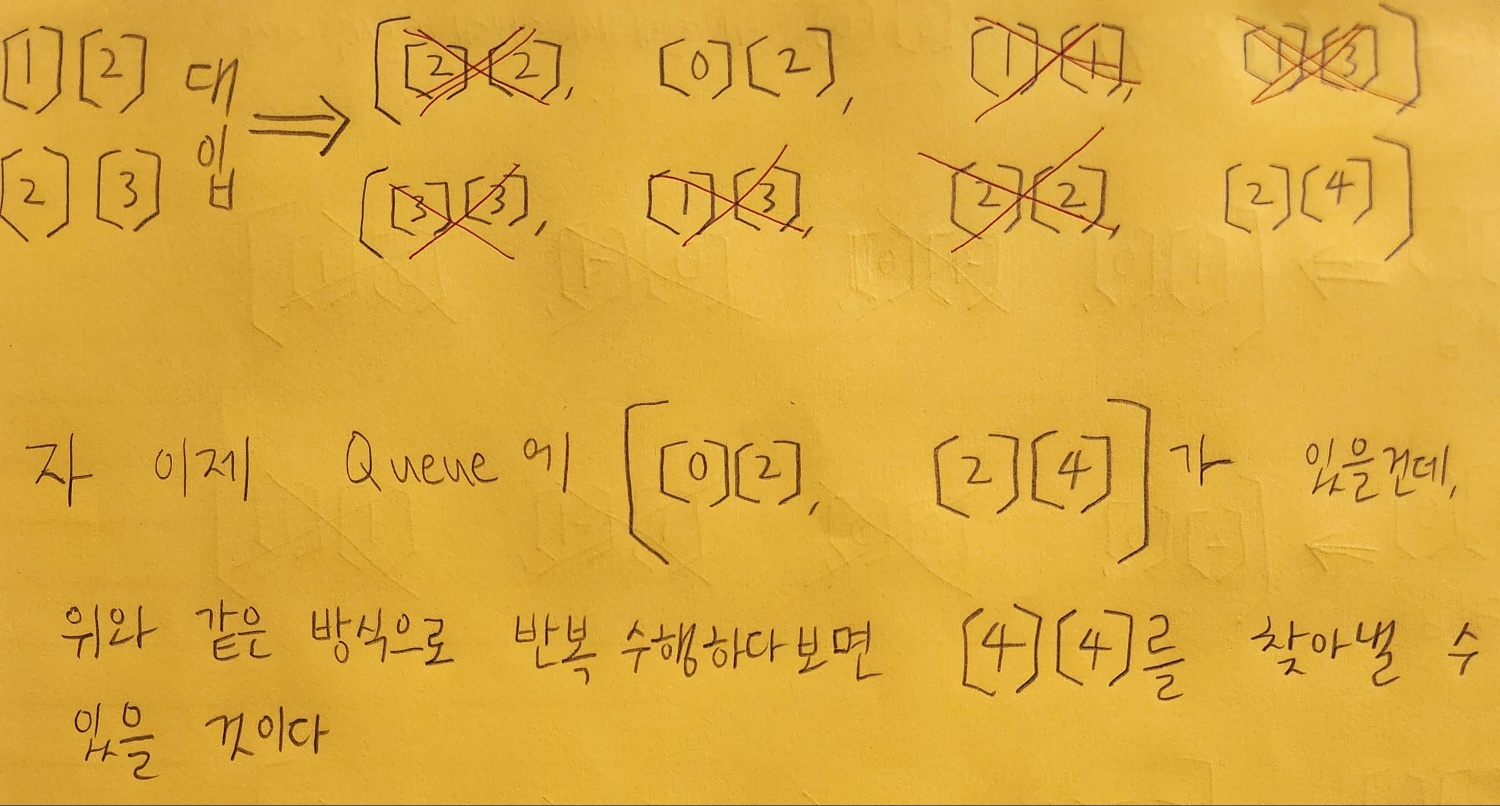 [1][2] 대 ⇒ [[2][2], [0][2], [1][1], [1][3]]
[2][3] 입 [[3][3], [1][3], [2][2], [2][4]]
자 이제 Queue에 [[0][2], [2][4]]가 있을건데,
위와 같은 방식으로 반복 수행하다보면 [4][4]를 찾아낼 수
있을 것이다